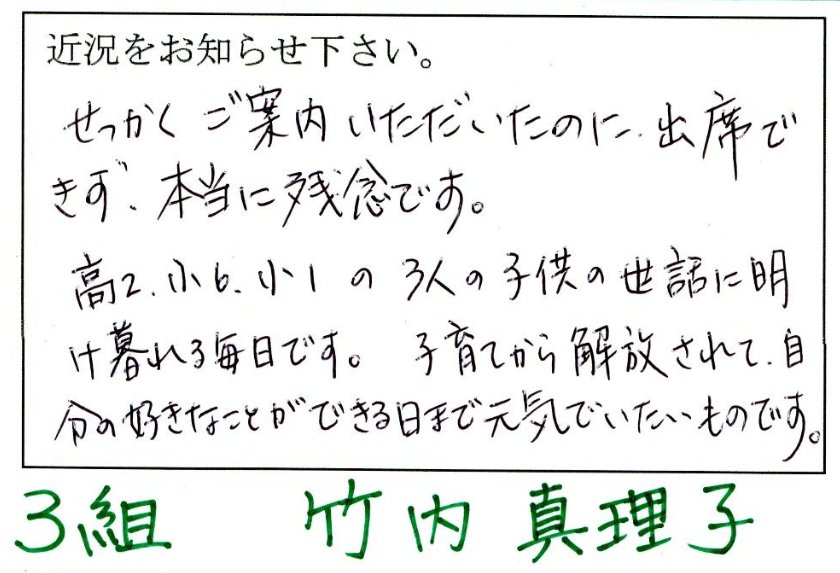 近況をお知らせ下さい。
せっかくご案内いただいたのに、出席で
きず、本当に残念です。
高2、小6、小1の3人の子供の世話に明
け暮れる毎日です。 子育てから解放されて、自
分の好きなことができる日まで元気でいたいものです。
3組 竹内真理子